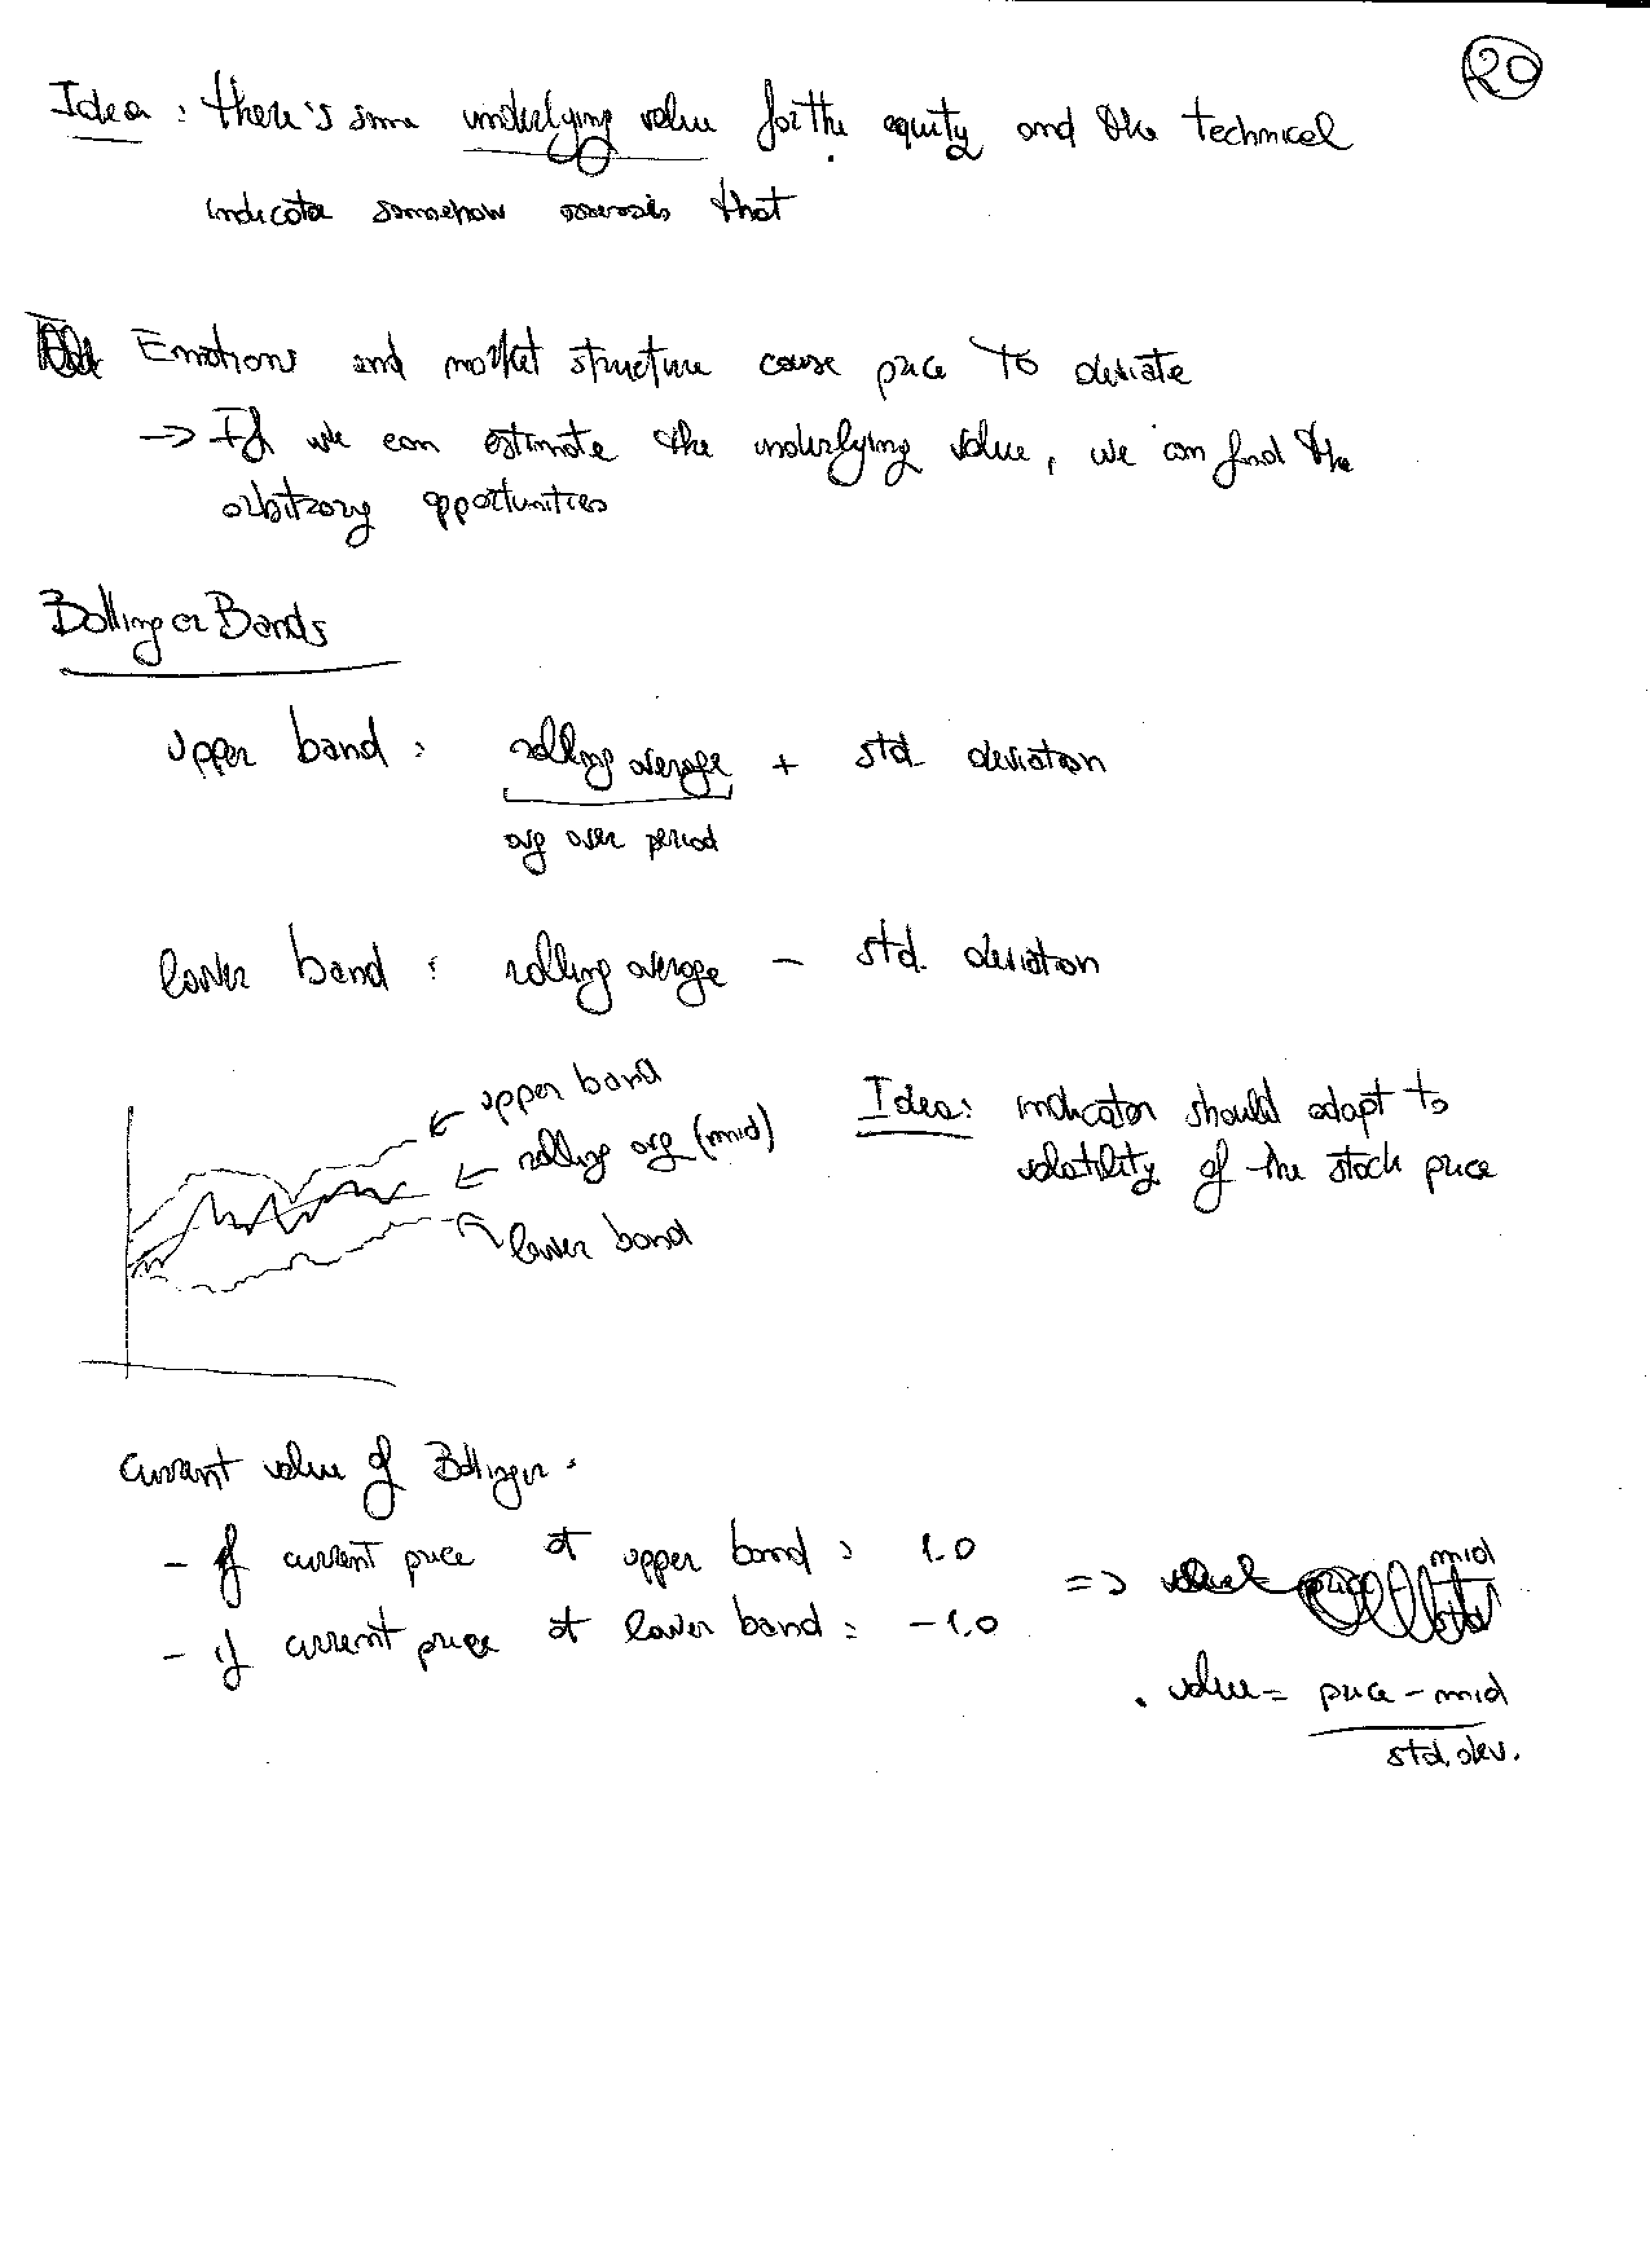 20
Idea: there's some underlying value for the equity and the technical
indicator somehow that
Emotions and market structure cause price to deviate
-> If we can estimate the underlying value, we can find the
arbitrary opportunities
Bollinger Bands
upper band: rolling average + std. deviation
avg over period
lower band: rolling average - std. deviation
<- upper band
<- rolling avg (mid)
lower band
Idea: indicator should adapt to
volatility of the stock price
current value of Bollinger:
- if current price at upper band: 1.0
- if current price at lower band: -1.0
=> mid
std
. value = price - mid
std. dev.